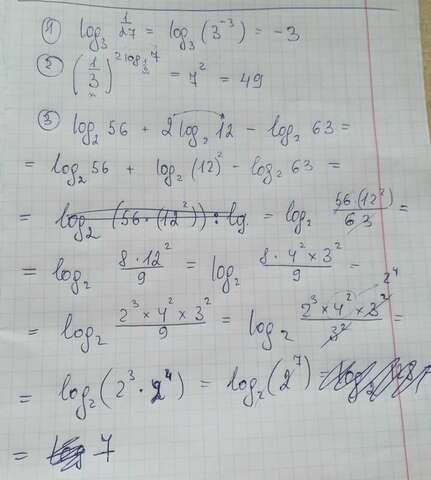 ① log₃ 1/27 = log₃(3⁻³) = -3
② (1/3)^(2log_(1/3) 7) = 7² = 49
③ log₂ 56 + 2log₂ 12 - log₂ 63 =
= log₂ 56 + log₂(12)² - log₂ 63 =
= log₂ (56·(12²)) : lg = log₂ 56(12²)/63 =
= log₂ 8·12²/9 = log₂ 8·4²×3²/9 =
= log₂ 2³×4²×3²/9 = log₂ 2³×4²×3²/3² = 2⁴
= log₂(2³·2⁴) = log₂(2⁷) =
= log 7